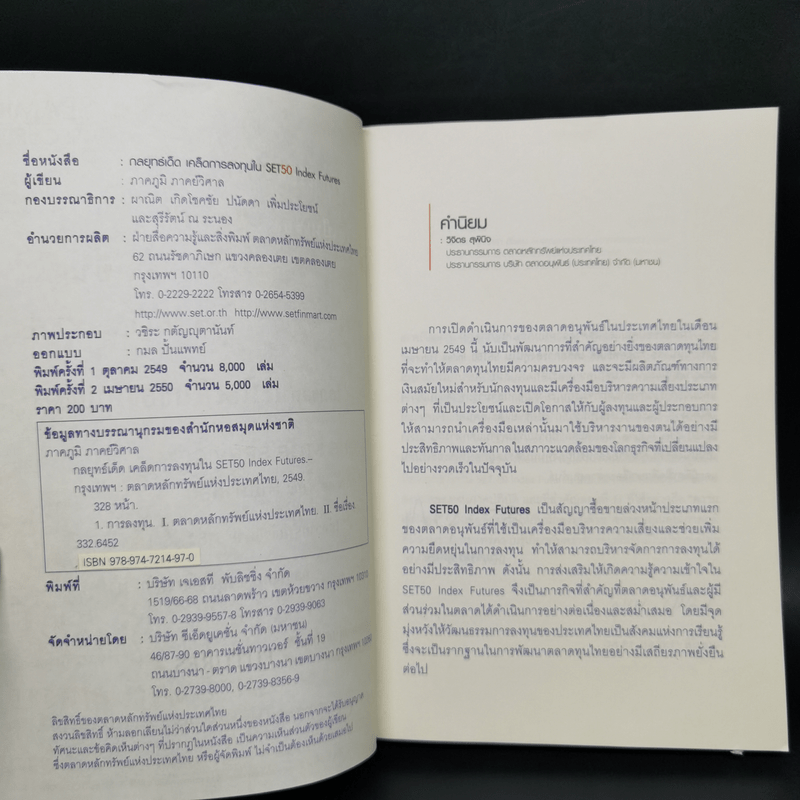 ชื่อหนังสือ : กลยุทธ์เด็ด เคล็ดการลงทุนใน SET50 Index Futures
ผู้เขียน : ภาคภูมิ ภาคย์วิศาล
กองบรรณาธิการ : ผาณิต เกิดโชคชัย ปนัดดา เพิ่มประโยชน์
และสุรีรัตน์ ณ ระนอง
อำนวยการผลิต : ฝ่ายสื่อความรู้และสิ่งพิมพ์ ตลาดหลักทรัพย์แห่งประเทศไทย
62 ถนนรัชดาภิเษก แขวงคลองเตย เขตคลองเตย
กรุงเทพฯ 10110
โทร. 0-2229-2222 โทรสาร 0-2654-5399
http://www.set.or.th http://www.setfinmart.com
ภาพประกอบ : วชิระ กตัญญุตานันท์
ออกแบบ : กมล ปั้นแพทย์
พิมพ์ครั้งที่ 1 ตุลาคม 2549 จำนวน 8,000 เล่ม
พิมพ์ครั้งที่ 2 เมษายน 2550 จำนวน 5,000 เล่ม
ราคา 200 บาท
ข้อมูลทางบรรณานุกรมของสำนักหอสมุดแห่งชาติ
ภาคภูมิ ภาคย์วิศาล
กลยุทธ์เด็ด เคล็ดการลงทุนใน SET50 Index Futures.–
กรุงเทพฯ : ตลาดหลักทรัพย์แห่งประเทศไทย, 2549.
328 หน้า.
1. การลงทุน. I. ตลาดหลักทรัพย์แห่งประเทศไทย. II. ชื่อเรื่อง
332.6452
ISBN 978-974-7214-97-0
พิมพ์ที่ : บริษัท เจเอสที พับลิชชิ่ง จำกัด
1519/66-68 ถนนลาดพร้าว เขตห้วยขวาง กรุงเทพฯ 10310
โทร. 0-2939-9557-8 โทรสาร 0-2939-9063
จัดจำหน่ายโดย : บริษัท ซีเอ็ดยูเคชั่น จำกัด (มหาชน)
46/87-90 อาคารเนชั่นทาวเวอร์ ชั้นที่ 19
ถนนบางนา - ตราด แขวงบางนา เขตบางนา กรุงเทพฯ 10260
โทร. 0-2739-8000, 0-2739-8356-9
ลิขสิทธิ์ของตลาดหลักทรัพย์แห่งประเทศไทย
สงวนลิขสิทธิ์ ห้ามลอกเลียนไม่ว่าส่วนใดส่วนหนึ่งของหนังสือ นอกจากจะได้รับอนุญาต
ทัศนะและข้อคิดเห็นต่างๆ ที่ปรากฏในหนังสือ เป็นความเห็นส่วนตัวของผู้เขียน
ซึ่งตลาดหลักทรัพย์แห่งประเทศไทย หรือผู้จัดพิมพ์ ไม่จำเป็นต้องเห็นด้วยเสมอไป
คำนิยม
: วิจิตร สุพินิจ
ประธานกรรมการ ตลาดหลักทรัพย์แห่งประเทศไทย
ประธานกรรมการ บริษัท ตลาดอนุพันธ์ (ประเทศไทย) จำกัด (มหาชน)
การเปิดดำเนินการของตลาดอนุพันธ์ในประเทศไทยในเดือน
เมษายน 2549 นี้ นับเป็นพัฒนาการที่สำคัญอย่างยิ่งของตลาดทุนไทย
ที่จะทำให้ตลาดทุนไทยมีความครบวงจร และจะมีผลิตภัณฑ์ทางการ
เงินสมัยใหม่สำหรับนักลงทุนและมีเครื่องมือบริหารความเสี่ยงประเภท
ต่างๆ ที่เป็นประโยชน์และเปิดโอกาสให้กับผู้ลงทุนและผู้ประกอบการ
ให้สามารถนำเครื่องมือเหล่านั้นมาใช้บริหารงานของตนได้อย่างมี
ประสิทธิภาพและทันกาลในสภาวะแวดล้อมของโลกธุรกิจที่เปลี่ยนแปลง
ไปอย่างรวดเร็วในปัจจุบัน
SET50 Index Futures เป็นสัญญาซื้อขายล่วงหน้าประเภทแรก
ของตลาดอนุพันธ์ที่ใช้เป็นเครื่องมือบริหารความเสี่ยงและช่วยเพิ่ม
ความยืดหยุ่นในการลงทุน ทำให้สามารถบริหารจัดการการลงทุนได้
อย่างมีประสิทธิภาพ ดังนั้น การส่งเสริมให้เกิดความรู้ความเข้าใจใน
SET50 Index Futures จึงเป็นภารกิจที่สำคัญที่ตลาดอนุพันธ์และผู้มี
ส่วนร่วมในตลาดได้ดำเนินการอย่างต่อเนื่องและสม่ำเสมอ โดยมีจุด
มุ่งหวังให้วัฒนธรรมการลงทุนของประเทศไทยเป็นสังคมแห่งการเรียนรู้
ซึ่งจะเป็นรากฐานในการพัฒนาตลาดทุนไทยอย่างมีเสถียรภาพยั่งยืน
ต่อไป